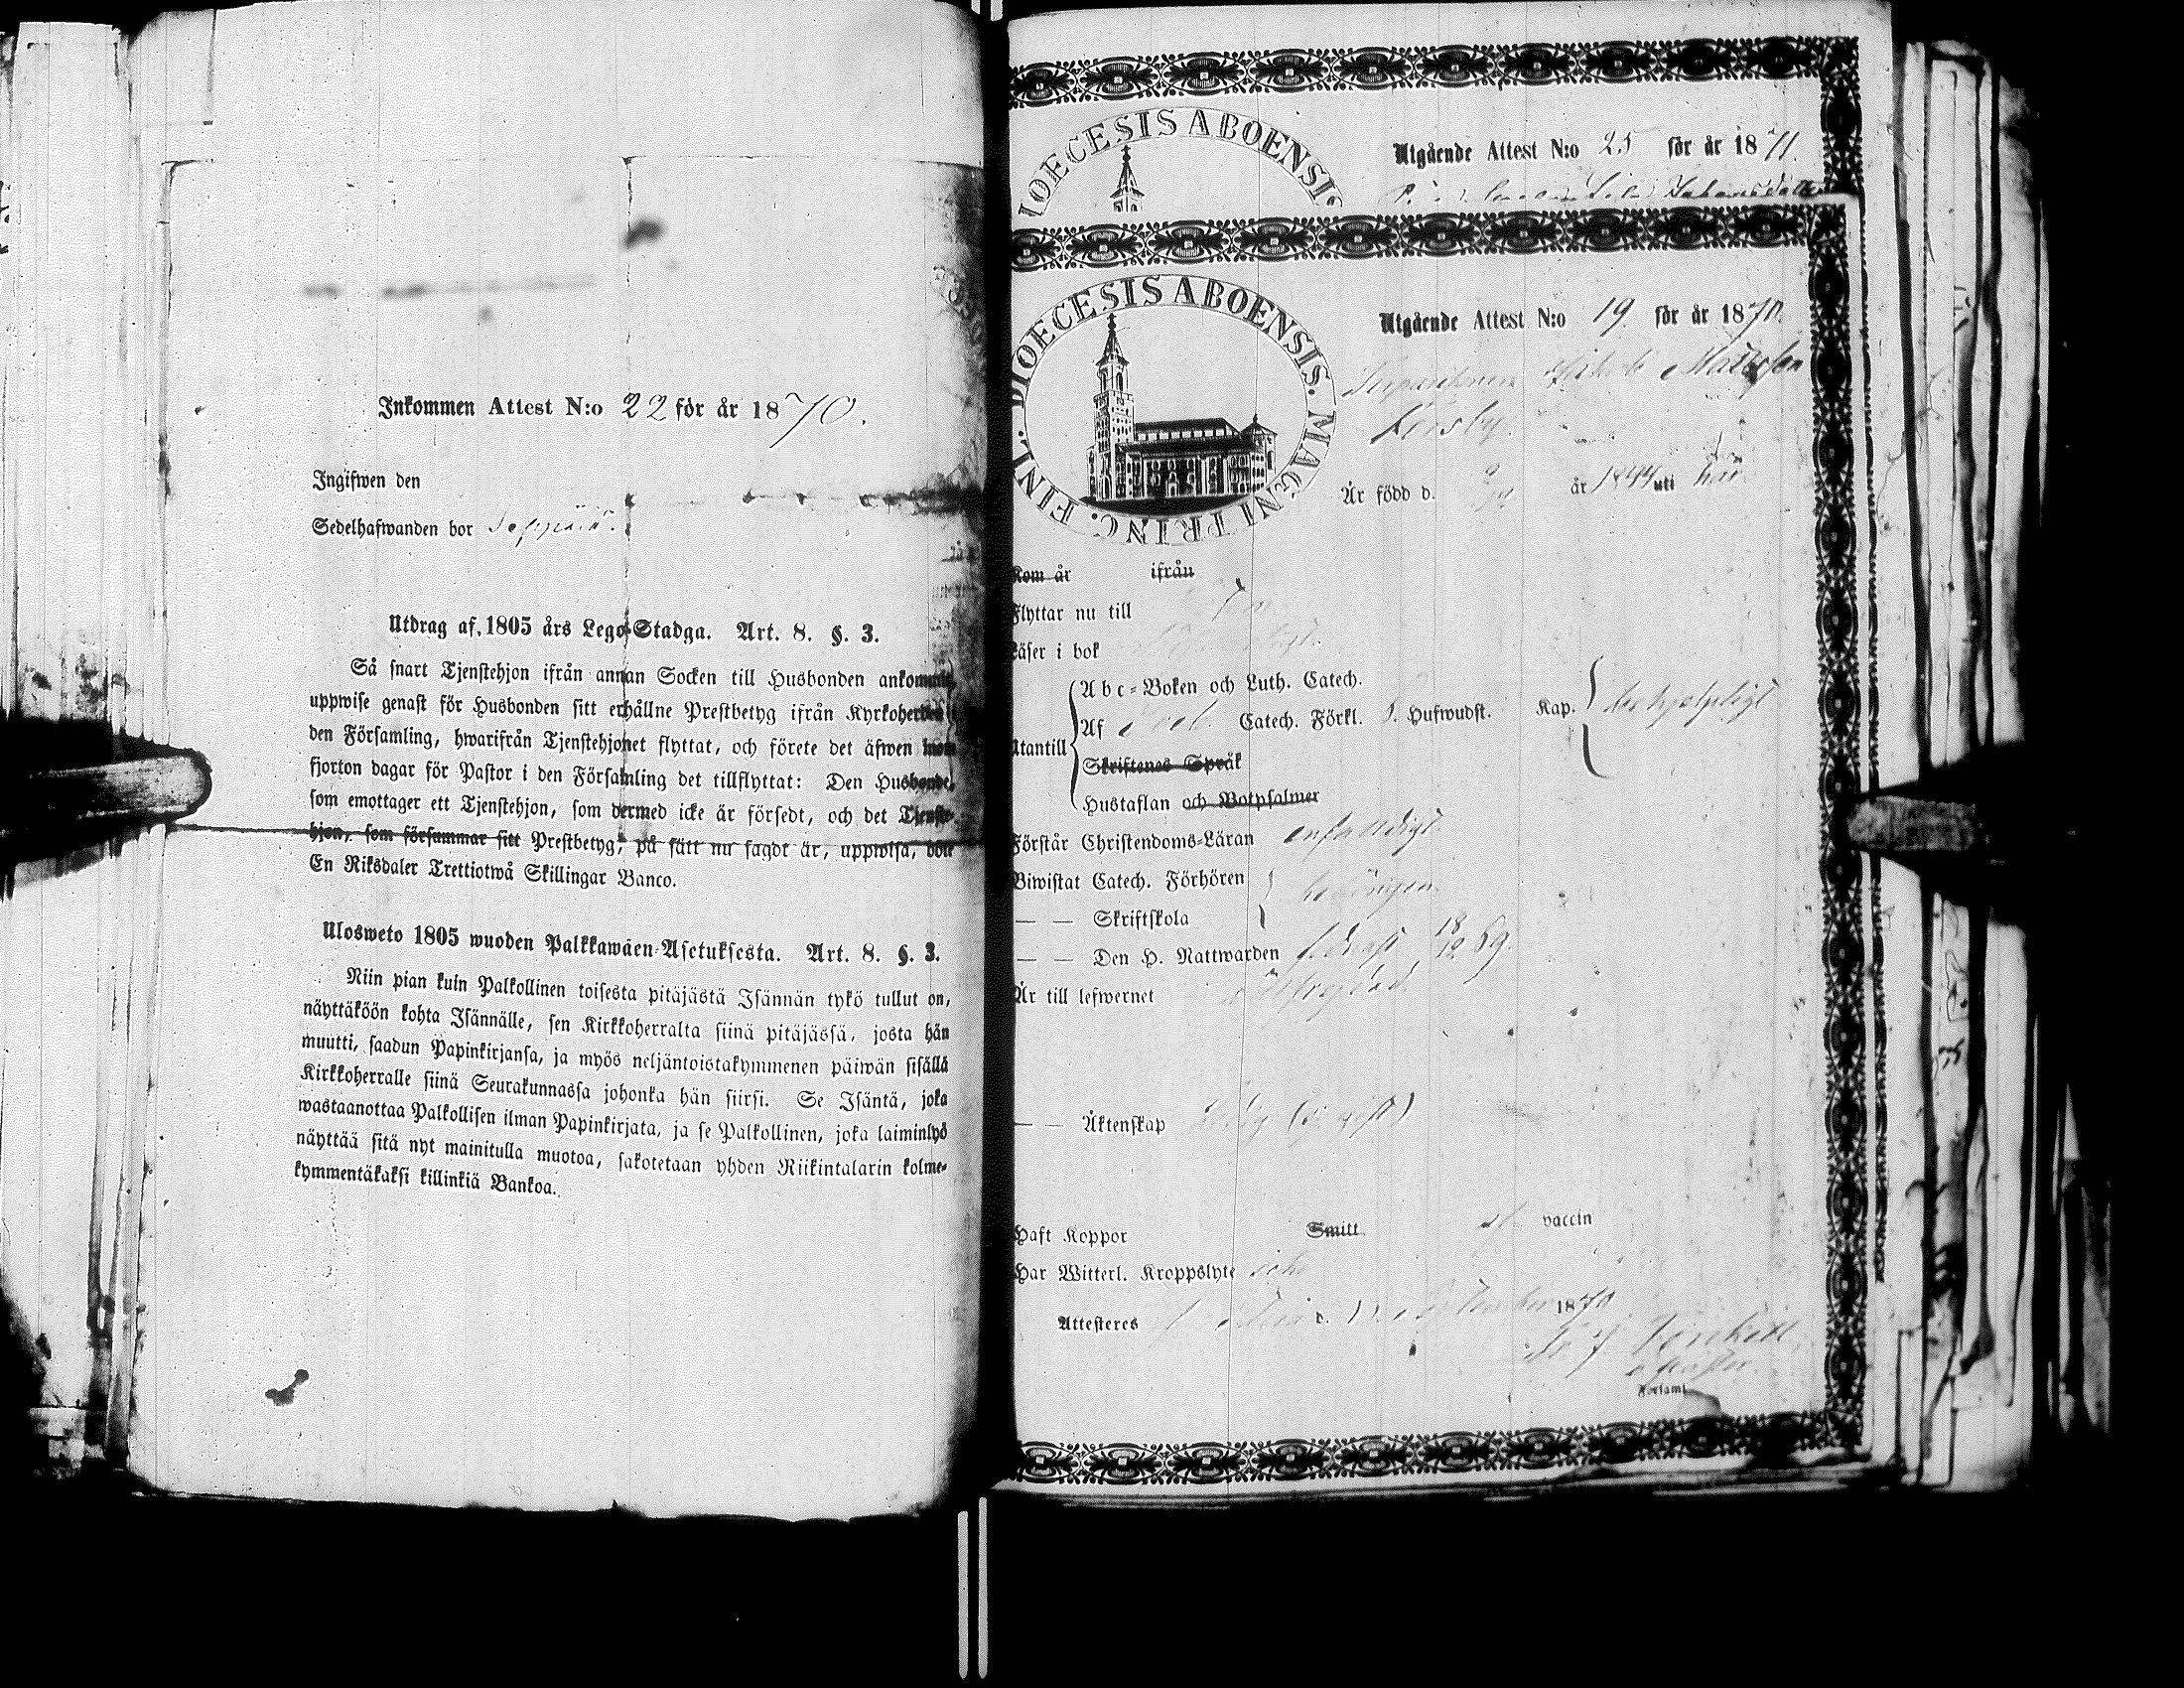 Inkommen Attest N:o 22 för år 1870.
Ingifwen den
Sedelhafwanden bor
Utdrag af 1805 års Lego-Stadga. Art. 8. §. 3.
Så snart Tjenstehjon ifrån annan Socken till Husbonden ankommit,
uppwise genast för Husbonden sitt erhållne Prestbetyg ifrån Kyrkoherden i
den Församling, hwarifrån Tjenstehjonet flyttat, och förete det äfwen inom
fjorton dagar för Pastor i den Församling det tillflyttat: Den Husbonde,
som emottager ett Tjenstehjon, som dermed icke är försedt, och det Tjenste-
hjon, som försummar sitt Prestbetyg, på sätt nu sagdt är, uppwisa, böte
En Riksdaler Trettiotwå Skillingar Banco.
Ulosweto 1805 wuoden Palkkawäen-Asetuksesta. Art. 8. §. 3.
Niin pian kuin Palkollinen toisesta pitäjästä Isännän tykö tullut on,
näyttäköön kohta Isännälle, sen Kirkkoherralta siinä pitäjässä, josta hän
muutti, saadun Papinkirjansa, ja myös neljäntoistakymmenen päiwän sisällä
Kirkkoherralle siinä Seurakunnassa johonka hän siirsi. Se Isäntä, joka
wastaanottaa Palkollisen ilman Papinkirjata, ja se Palkollinen, joka laiminlyö
näyttää sitä nyt mainitulla muotoa, sakotetaan yhden Riikintalarin kolme-
kymmentäkaksi killinkiä Bankoa.
DIOECESIS ABOENSIS
Utgående Attest N:o 25 för år 1871.
Johansdotter
DIOECESIS ABOENSIS. MAGNI PRINC. FINL.
Utgående Attest N:o 19 för år 1870.
Mattsson
År född d. år 1844 uti
Kom år ifrån
Flyttar nu till
Läser i bok
Utantill
Abc-Boken och Luth. Catech.
Af Catech. Förkl. Hufwudst. Kap.
Skriftenes Språk
Hustaflan och Botpsalmer
Förstår Christendoms-Läran enfaldigt
Biwistat Catech. Förhören
— — Skriftskola
— — Den H. Nattwarden sednast 18/12 69.
År till lefwernet
— — Äktenskap Ledig
Haft Koppor Smitt vaccin
Har Witterl. Kroppslyte icke
Attesteres d. September 1870
Församl